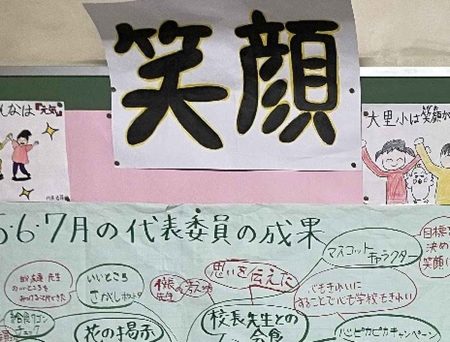 笑顔
んなは『元気』
大里小は笑顔が
5・6・7月の代表委員の成果
目標を
決め
笑顔い
マスコット
キャラクター
思いを伝えた
いいところ
さがしポスト
校長
先生
心もきれいに
することで心も学校もきれい
給食ワゴン
チェック
花の掲示
校長先生との
会食
心ピカピカキャンペーン